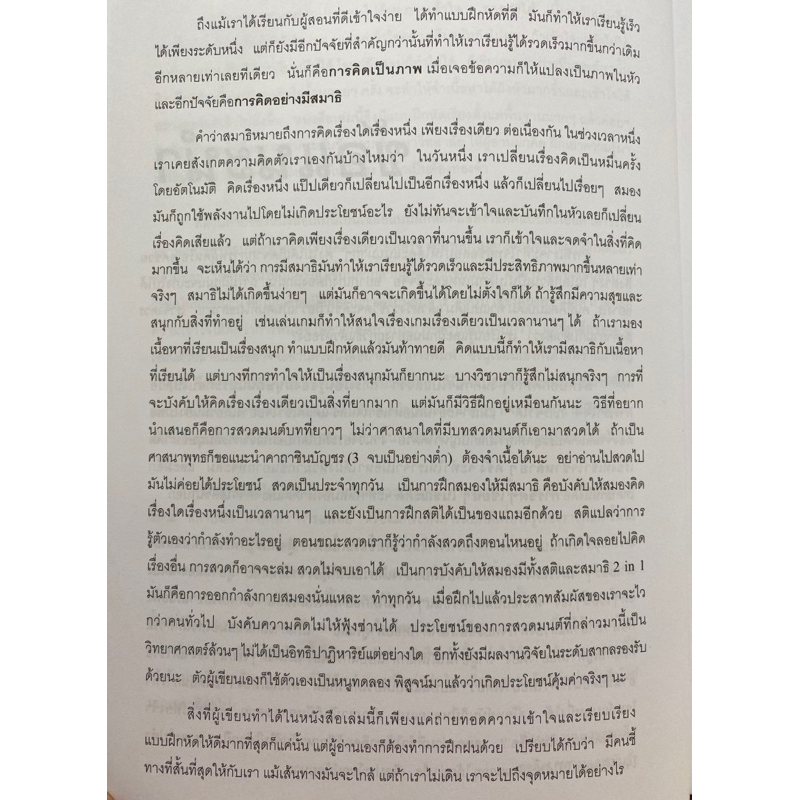 ถึงแม้เราได้เรียนกับผู้สอนที่ดีเข้าใจง่าย ได้ทำแบบฝึกหัดที่ดี มันก็ทำให้เราเรียนรู้เร็ว
ได้เพียงระดับหนึ่ง แต่ก็ยังมีอีกปัจจัยที่สำคัญกว่านั้นที่ทำให้เราเรียนรู้ได้รวดเร็วมากขึ้นกว่าเดิม
อีกหลายเท่าเลยทีเดียว นั่นก็คือการคิดเป็นภาพ เมื่อเจอข้อความก็ให้แปลงเป็นภาพในหัว
และอีกปัจจัยคือการคิดอย่างมีสมาธิ
คำว่าสมาธิหมายถึงการคิดเรื่องใดเรื่องหนึ่ง เพียงเรื่องเดียว ต่อเนื่องกัน ในช่วงเวลาหนึ่ง
เราเคยสังเกตความคิดตัวเราเองกันบ้างไหมว่า ในวันหนึ่ง เราเปลี่ยนเรื่องคิดเป็นหมื่นครั้ง
โดยอัตโนมัติ คิดเรื่องหนึ่ง แป๊ปเดียวก็เปลี่ยนไปเป็นอีกเรื่องหนึ่ง แล้วก็เปลี่ยนไปเรื่อยๆ สมอง
มันก็ถูกใช้พลังงานไปโดยไม่เกิดประโยชน์อะไร ยังไม่ทันจะเข้าใจและบันทึกในหัวเลยก็เปลี่ยน
เรื่องคิดเสียแล้ว แต่ถ้าเราคิดเพียงเรื่องเดียวเป็นเวลาที่นานขึ้น เราก็เข้าใจและจดจำในสิ่งที่คิด
มากขึ้น จะเห็นได้ว่า การมีสมาธิมันทำให้เราเรียนรู้ได้รวดเร็วและมีประสิทธิภาพมากขึ้นหลายเท่า
จริงๆ สมาธิไม่ได้เกิดขึ้นง่ายๆ แต่มันก็อาจจะเกิดขึ้นได้โดยไม่ตั้งใจก็ได้ ถ้ารู้สึกมีความสุขและ
สนุกกับสิ่งที่ทำอยู่ เช่นเล่นเกมก็ทำให้สนใจเรื่องเกมเรื่องเดียวเป็นเวลานานๆ ได้ ถ้าเรามอง
เนื้อหาที่เรียนเป็นเรื่องสนุก ทำแบบฝึกหัดแล้วมันท้าทายดี คิดแบบนี้ก็ทำให้เรามีสมาธิกับเนื้อหา
ที่เรียนได้ แต่บางทีการทำใจให้เป็นเรื่องสนุกมันก็ยากนะ บางวิชาเราก็รู้สึกไม่สนุกจริงๆ การที่
จะบังคับให้คิดเรื่องเรื่องเดียวเป็นสิ่งที่ยากมาก แต่มันก็มีวิธีฝึกอยู่เหมือนกันนะ วิธีที่อยาก
นำเสนอก็คือการสวดมนต์บทที่ยาวๆ ไม่ว่าศาสนาใดที่มีบทสวดมนต์ก็เอามาสวดได้ ถ้าเป็น
ศาสนาพุทธก็ขอแนะนำคาถาชินบัญชร (3 จบเป็นอย่างต่ำ) ต้องจำเนื้อได้นะ อย่าอ่านไปสวดไป
มันไม่ค่อยได้ประโยชน์ สวดเป็นประจำทุกวัน เป็นการฝึกสมองให้มีสมาธิ คือบังคับให้สมองคิด
เรื่องใดเรื่องหนึ่งเป็นเวลานานๆ และยังเป็นการฝึกสติได้เป็นของแถมอีกด้วย สติแปลว่าการ
รู้ตัวเองว่ากำลังทำอะไรอยู่ ตอนขณะสวดเราก็รู้ว่ากำลังสวดถึงตอนไหนอยู่ ถ้าเกิดใจลอยไปคิด
เรื่องอื่น การสวดก็อาจจะล่ม สวดไม่จบเอาได้ เป็นการบังคับให้สมองมีทั้งสติและสมาธิ 2 in 1
มันก็คือการออกกำลังกายสมองนั่นแหละ ทำทุกวัน เมื่อฝึกไปแล้วประสาทสัมผัสของเราจะไว
กว่าคนทั่วไป บังคับความคิดไม่ให้ฟุ้งซ่านได้ ประโยชน์ของการสวดมนต์ที่กล่าวมานี้เป็น
วิทยาศาสตร์ล้วนๆ ไม่ได้เป็นอิทธิปาฏิหาริย์แต่อย่างใด อีกทั้งยังมีผลงานวิจัยในระดับสากลรองรับ
ด้วยนะ ตัวผู้เขียนเองก็ใช้ตัวเองเป็นหนูทดลอง พิสูจน์มาแล้วว่าเกิดประโยชน์คุ้มค่าจริงๆ นะ
สิ่งที่ผู้เขียนทำได้ในหนังสือเล่มนี้ก็เพียงแค่ถ่ายทอดความเข้าใจและเรียบเรียง
แบบฝึกหัดให้ดีมากที่สุดก็แค่นั้น แต่ผู้อ่านเองก็ต้องทำการฝึกฝนด้วย เปรียบได้กับว่า มีคนชี้
ทางที่สั้นที่สุดให้กับเรา แม้เส้นทางมันจะใกล้ แต่ถ้าเราไม่เดิน เราจะไปถึงจุดหมายได้อย่างไร